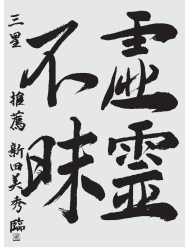 虚霊
不昧
三星 推薦 新田美秀臨